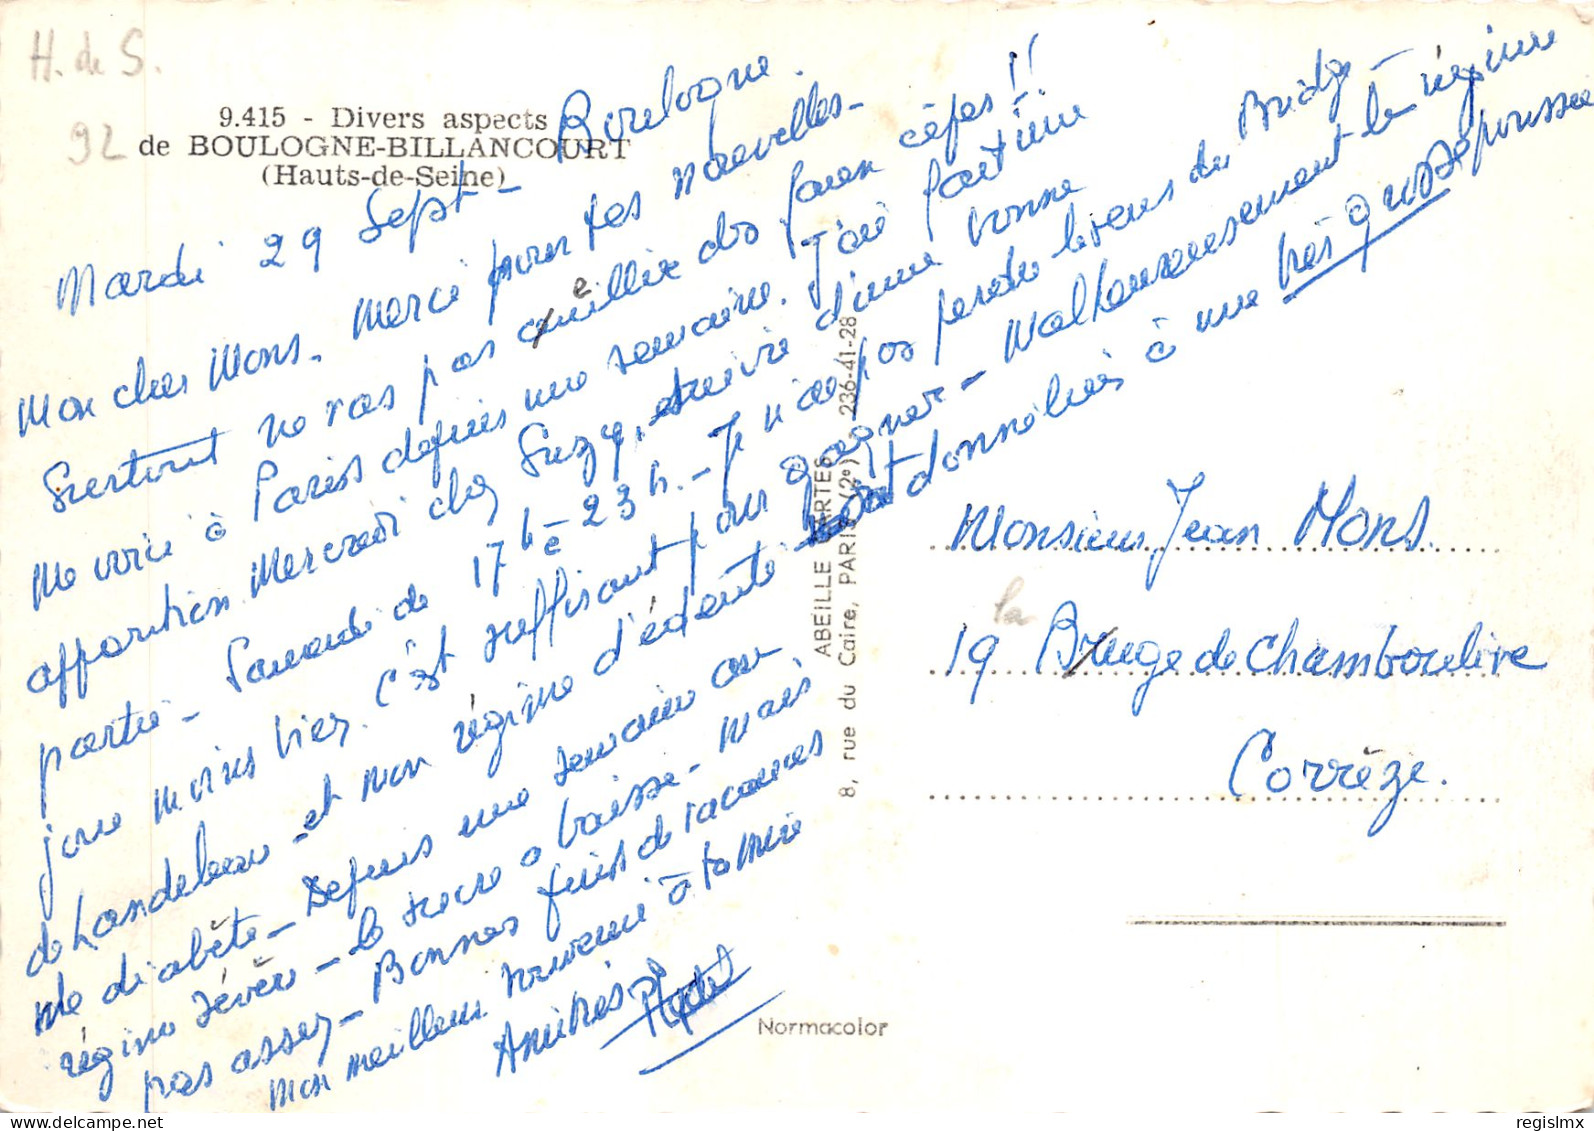 H. de S.
92
9.415 - Divers aspects
de BOULOGNE-BILLANCOURT
(Hauts-de-Seine)
Mardi 29 Sept - Boulogne.
Mon cher Mons. Merci pour tes nouvelles -
Surtout ne vas pas cueillir des faux cèpes !!
Me voici à Paris depuis une semaine. J'ai fait une
apparition Mercredi chez Suzy, suivie d'une bonne
partie - Samedi de 17 h à 23 h. - Je n'ai pas perdu le sens du Bridge -
joué moins hier. C'est suffisant pour gagner - Malheureusement le régime
de Landebeau - et mon régime d'édenté ont donné lieu à une très grosse poussée
de diabète - Depuis une semaine au
régime sévère - le sucre a baissé - mais
pas assez - Bonnes fins de vacances
Mon meilleur souvenir à ta mère
Amitiés
ABEILLE CARTES
8, rue du Caire, PARIS (2e) 236-41-28
Normacolor
Monsieur Jean Mons.
la
19 Bruge de Chamboulive
Corrèze.
regislmx